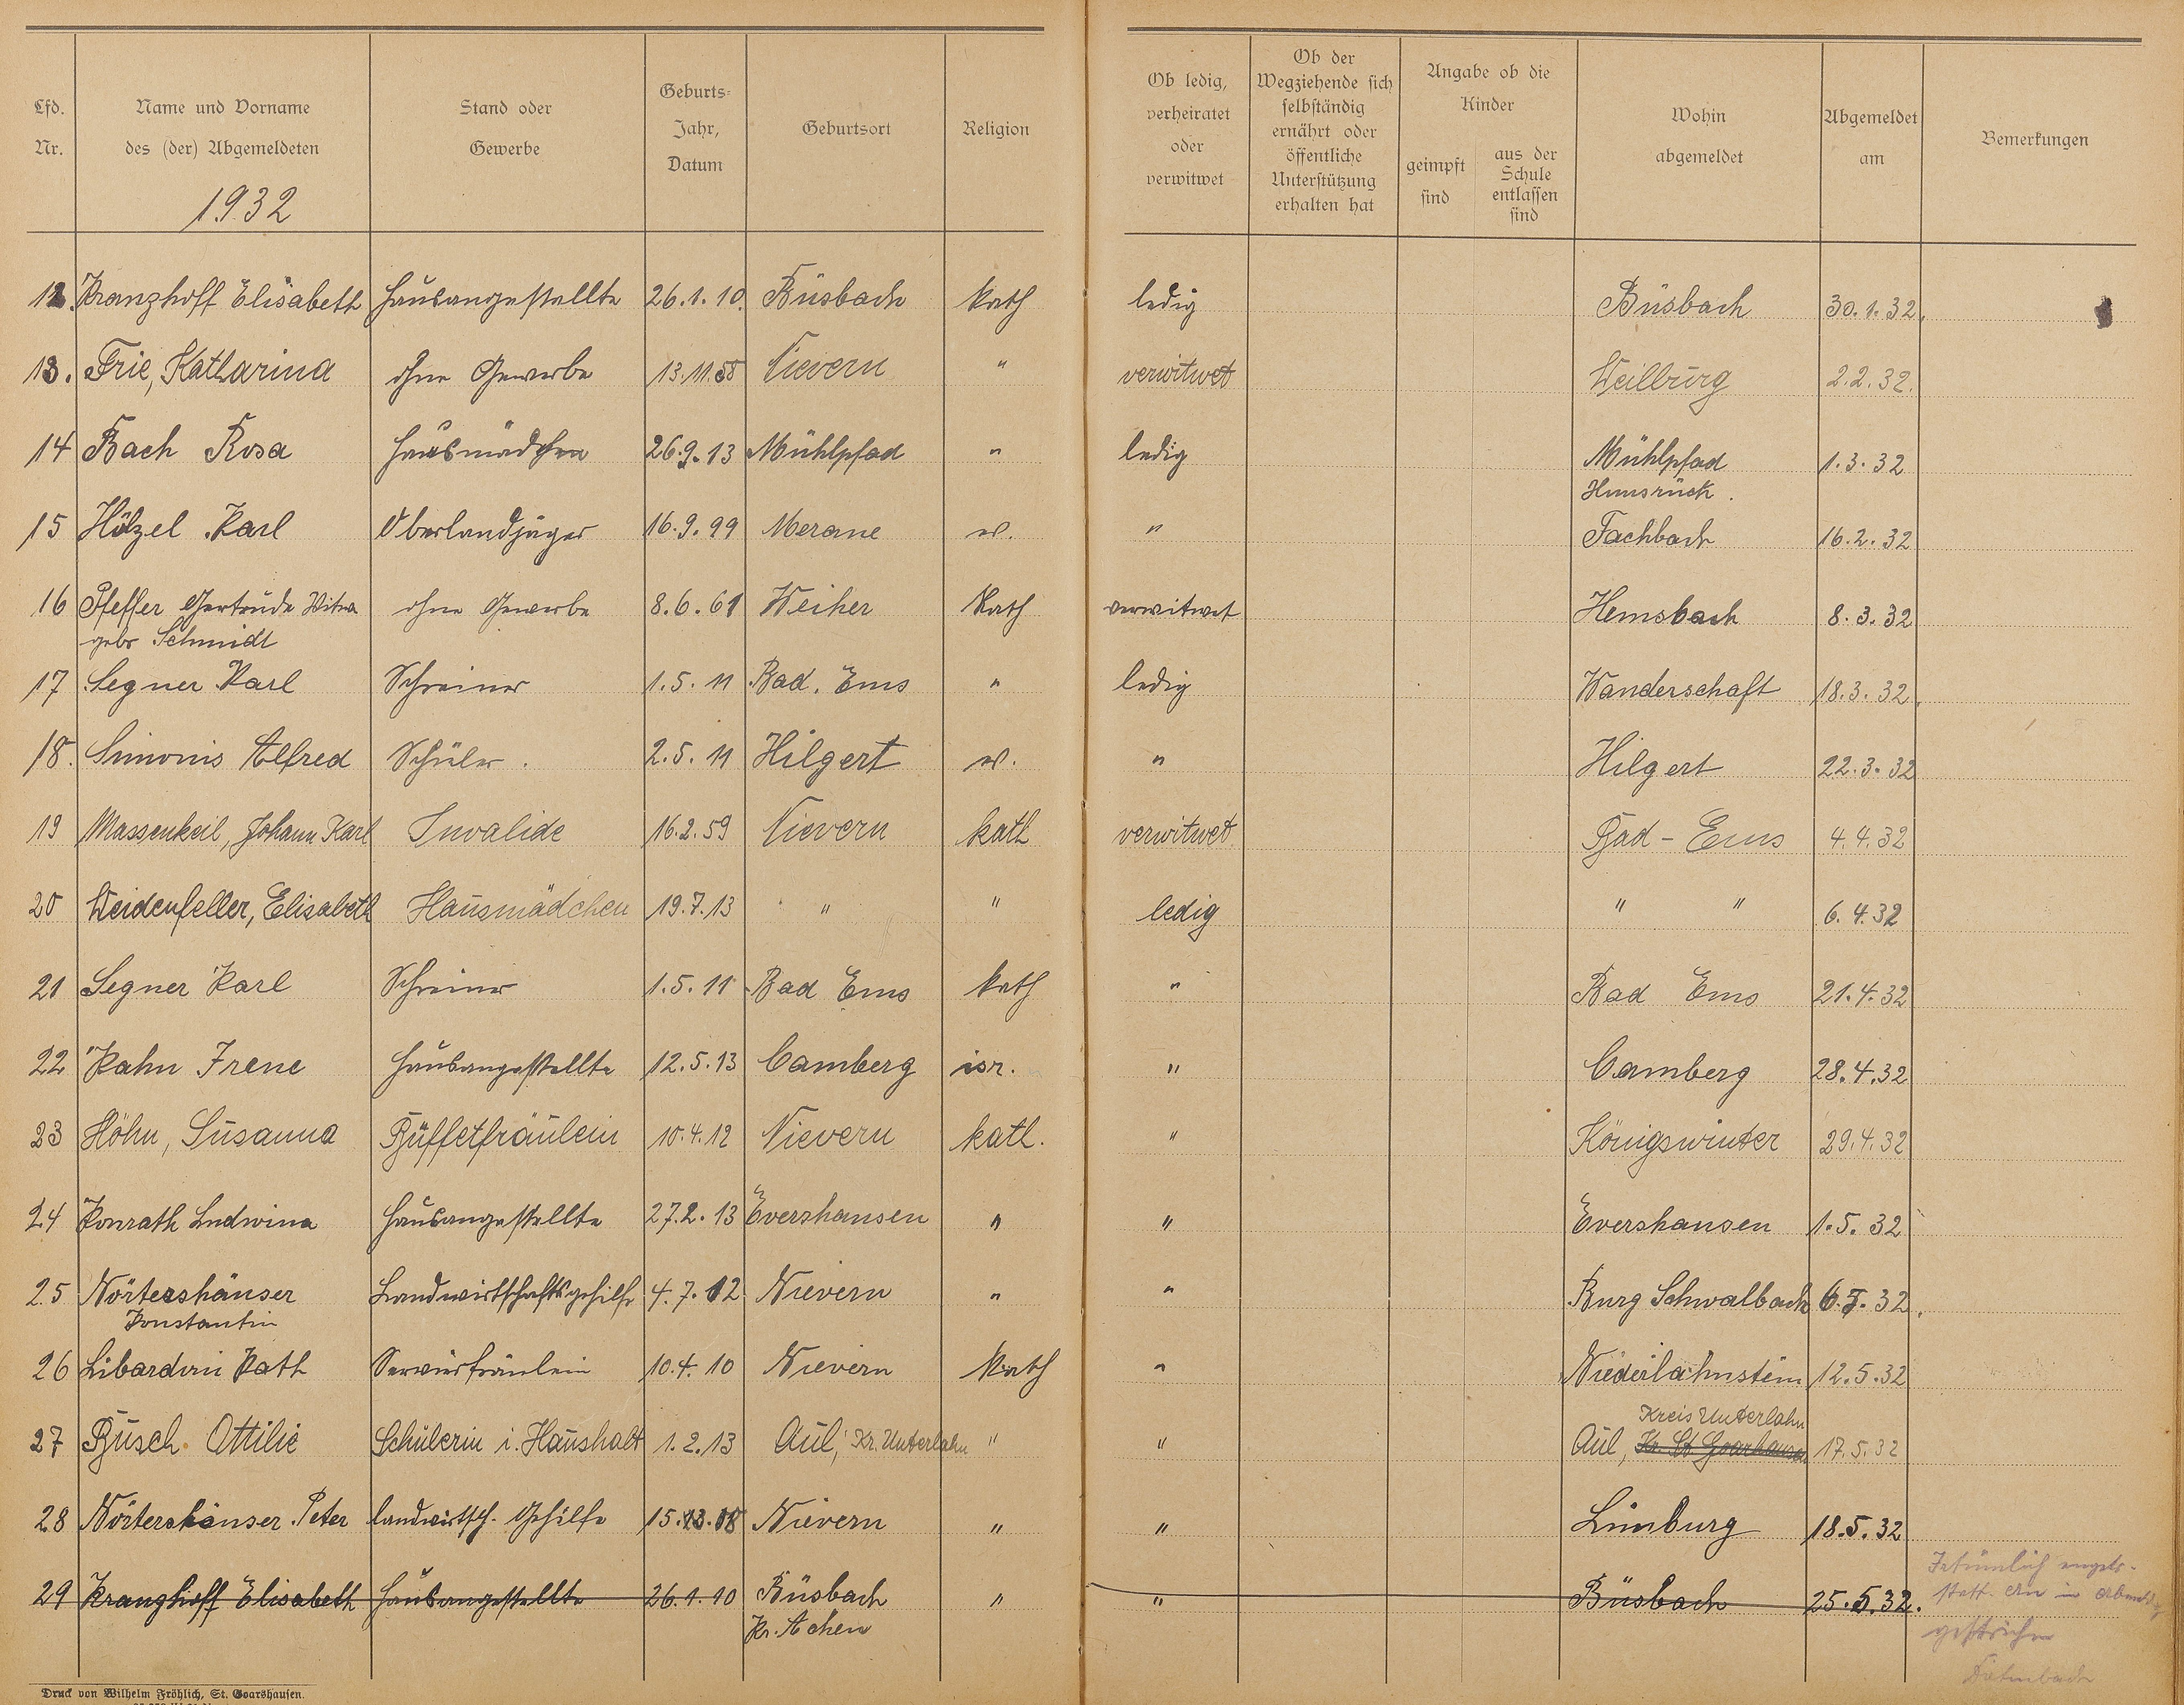 Lfd. Nr.
Name und Vorname des (der) Abgemeldeten
1932
Stand oder Gewerbe
Geburts-Jahr, Datum
Geburtsort
Religion
Ob ledig, verheiratet oder verwitwet
Ob der Wegziehende sich selbständig ernährt oder öffentliche Unterstützung erhalten hat
Angabe ob die Kinder
geimpft sind
aus der Schule entlassen sind
Wohin abgemeldet
Abgemeldet am
Bemerkungen
12. Kranzhoff Elisabeth Hausangestellte 26.1.10. Büsbach kath ledig Büsbach 30.1.32.
13. Frie, Katharina ohne Gewerbe 13.11.58 Nievern " verwitwet Weilburg 2.2.32.
14 Bach Rosa Hausmädchen 26.9.13 Mühlpfad " ledig Mühlpfad 1.3.32
Hunsrück.
15 Hölzel Karl Oberlandjäger 16.9.99 Merane ev. " Fachbach 16.2.32
16 Pfeffer Gertrude Witwe ohne Gewerbe 8.6.61 Weiher kath verwitwet Hemsbach 8.3.32
gebr Schmidt
17 Segner Karl Schreiner 1.5.11 Bad. Ems " ledig Wanderschaft 18.3.32.
18. Simonis Alfred Schüler. 2.5.11 Hilgert ev. " Hilgert 22.3.32
19 Massenkeil, Johann Karl Invalide 16.2.59 Nievern kath verwitwet Bad-Ems 4.4.32
20 Weidenfeller, Elisabeth Hausmädchen 19.7.13 " " ledig " " 6.4.32
21 Segner Karl Schreiner 1.5.11 Bad Ems kath " Bad Ems 21.4.32
22 Kahn Irene Hausangestellte 12.5.13 Camberg isr. " Camberg 28.4.32
23 Höhn, Susanna Büffetfräulein 10.4.12 Nievern kath. " Königswinter 29.4.32
24 Konrath Ludwina Hausangestellte 27.2.13 Evershausen " " Evershausen 1.5.32
25 Nörtershäuser Landwirtschaftsgehilfe 4.7.12 Nievern " " Burg Schwalbach 6.5.32.
Konstantin
26 Libardoni Kath Servierfräulein 10.4.10 Nievern kath " Niederlahnstein 12.5.32
Kreis Unterlahn
27 Busch Ottilie Schülerin i. Haushalt 1.2.13 Aul, Kr. Unterlahn " " Aul, Kr. St. Goarshausen 17.5.32
28 Nörtershäuser Peter landwirtsch. Gehilfe Nievern " " Limburg 18.5.32
29 Kranzhoff Elisabeth Hausangestellte 26.1.10 Büsbach " " Büsbach 25.5.32.
Kr. Achen
gestrichen
Druck von Wilhelm Fröhlich, St. Goarshausen.